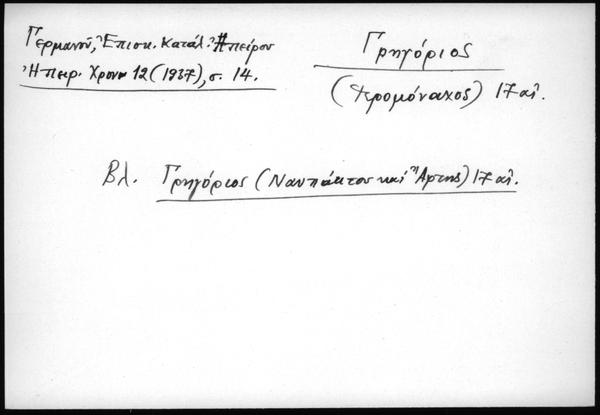 Γερμανοῦ, Ἐπισκ. Κατάλ. Ἠπείρου
Ἠπειρ. Χρον. 12 (1937), σ. 14.
Γρηγόριος
(ἱερομόναχος) 17 αἰ.
Βλ. Γρηγόριος (Ναυπάκτου καὶ Ἄρτης) 17 αἰ.